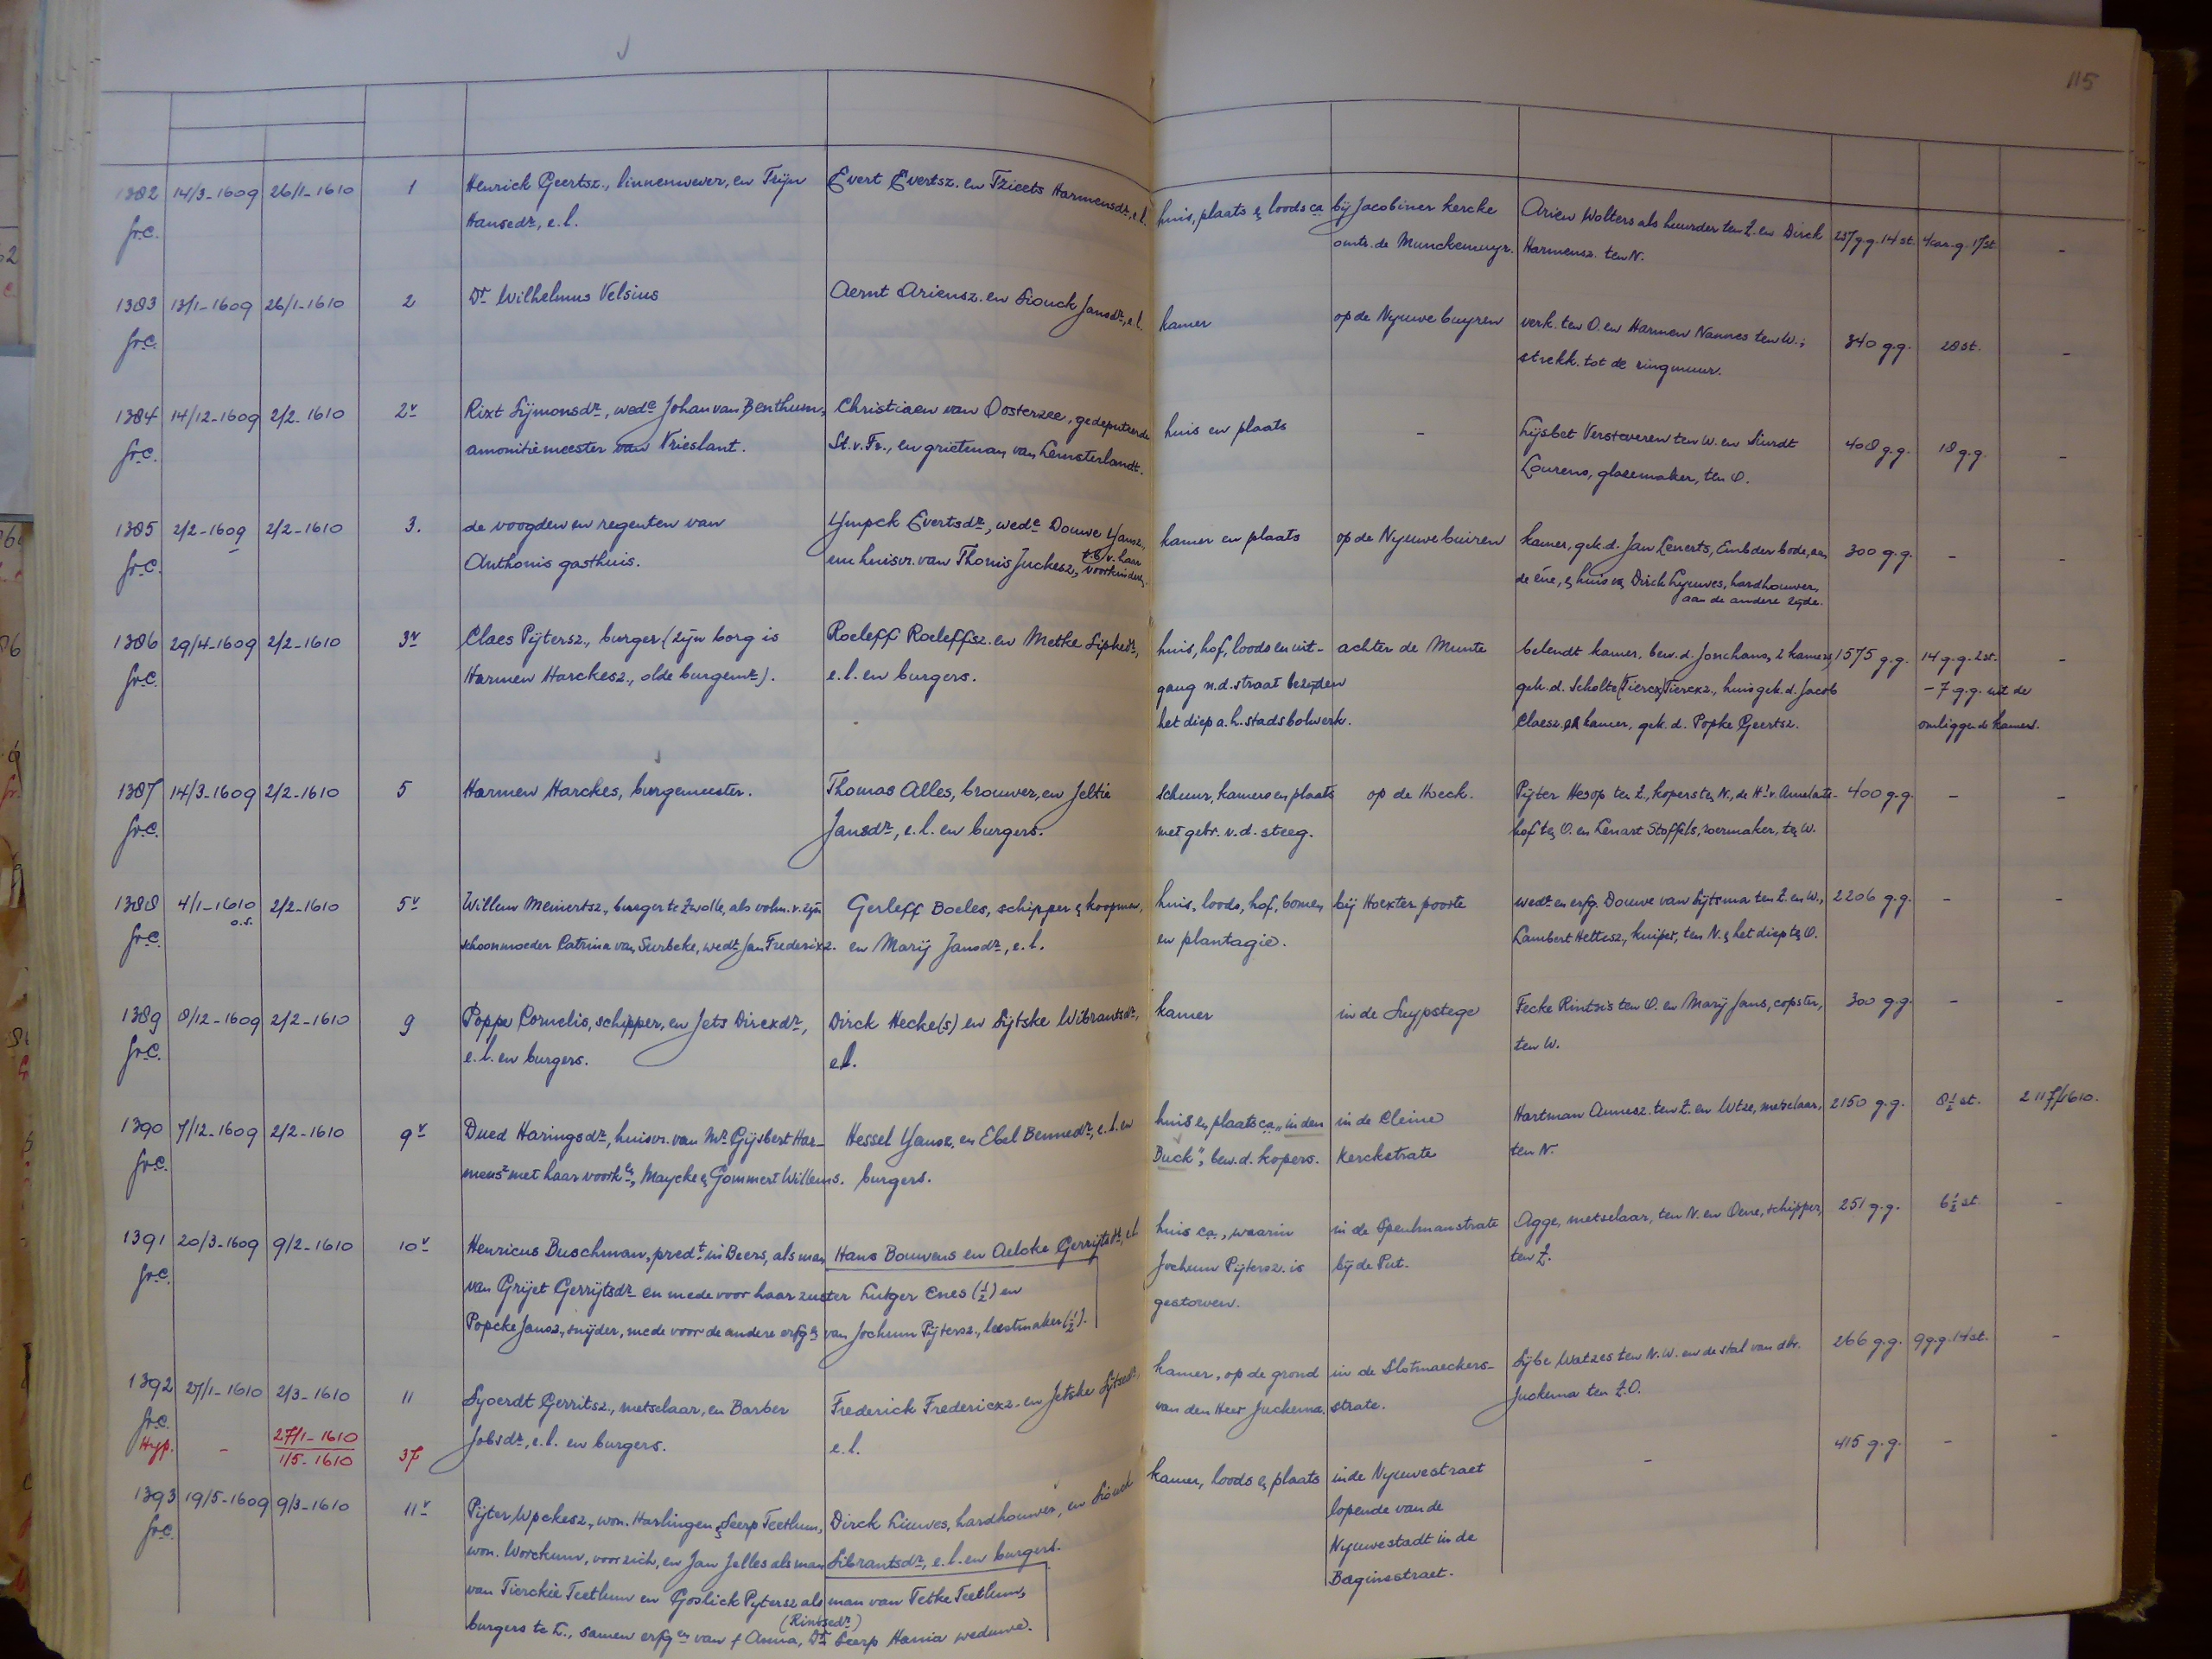 115
1382 14/3-1609 26/1-1610 1 Henrick Geertsz., linnenwever, en Trijn Evert Evertsz. en Tzieets Harmensdr, e.l. huis, plaats & loods ca bij Jacobiner kercke Arien Wolters als huurder ten Z. en Dirck 237 g.g. 14 st. 4 car.g. 17 st. -
fr.c. Hansedr, e.l. omtr. de Munckemuyr. Harmensz. ten N.
1383 13/1-1609 26/1-1610 2 Dr Wilhelmus Velsius Aernt Ariensz. en Siouck Jansdr, e.l. kamer op de Nyuwe buyren verk. ten O. en Harmen Nannes ten W.; 340 g.g. 28 st. -
fr.c. strekk. tot de ringmuur.
1384 14/12-1609 2/2-1610 2v Rixt Sijmonsdr, wede Johan van Benthum, Christiaen van Oosterzee, gedeputeerde huis en plaats - Lijsbet Versteveren ten W. en Siurdt 408 g.g. 18 g.g. -
fr.c. amonitiemeester van Vrieslant. St. v. Fr., en grietman van Lemsterlandt. Lourens, glasemaker, ten O.
1385 2/2-1609 2/2-1610 3. de voogden en regenten van Ympck Evertsdr, wede Douwe Yansz., kamer en plaats op de Nyuwe buiren kamer, gek. d. Jan Leverts, Embder bode, aan 300 g.g. - -
fr.c. Anthonis gasthuis. nu huisvr. van Thonis Juckesz, t.b.v. haar voorkinderen. de éne, & huis van Dirck Lyuwes, hardhouwer,
aan de andere zijde.
1386 29/4-1609 2/2-1610 3v Claes Pijtersz., burger (zijn borg is Roeleff Roeleffsz. en Metke Sipkedr, huis, hof, loods en uit- achter de Munte belendt kamer, bew. d. Jonchans, 2 kamers, 1575 g.g. 14 g.g. 2 st. -
fr.c. Harmen Harckesz., olde burgemr). e.l. en burgers. gang n.d. straat bezijden gek. d. Scholte (Tiercx) Tiercxz., huis gek. d. Jacob - 7 g.g. uit de
het diep a.h. stadsbolwerk. Claesz. en kamer, gek. d. Popke Geertsz. omliggende kamers.
1387 14/3-1609 2/2-1610 5 Harmen Harckes, burgemeester. Thomas Alles, brouwer, en Jeltie schuur, kamers en plaats op de Hoeck. Pijter Hesop ten Z., kopers ten N., de Hr v. Amelants- 400 g.g. - -
fr.c. Jansdr, e.l. en burgers. met gebr. v.d. steeg. hof ten O. en Lenart Stoffels, roermaker, ten W.
1388 4/1-1610 2/2-1610 5v Willem Meinertsz., burger te Zwolle, als volm. v. zijn Gerleff Boeles, schipper & koopman, huis, loods, hof, bomen bij Hoexter poorte wedr en erfg. Douwe van Sijtsma ten Z. en W., 2206 g.g. - -
fr.c. o.s. schoonmoeder Catrina van Surbeke, wede Jan Frederixz. en Marij Jansdr, e.l. en plantagie. Lambert Hettesz., kuiper, ten N. & het diep ten O.
1389 8/12-1609 2/2-1610 9 Poppe Cornelis, schipper, en Jets Dircxdr, Dirck Hecke(s) en Sijtske Wibrantsdr, kamer in de Suypstege Fecke Rintsis ten O. en Marij Jans, copster, 300 g.g. - -
fr.c. e.l. en burgers. e.l. ten W.
1390 7/12-1609 2/2-1610 9v Dued Haringsdr, huisvr. van Mr Gijsbert Har- Hessel Yansz. en Ebel Bennedr, e.l. en huis en plaats ca „in den in de Cleine Hartman Annesz. ten Z. en Utze, metselaar, 2150 g.g. 8½ st. 2 117/1610.
fr.c. mensz met haar voorkn, Maycke & Gommert Willems. burgers. Buck", bew. d. kopers. Kerckstrate ten N.
1391 20/3-1609 9/2-1610 10v Henricus Buschman, predt in Beers, als man Hans Bouwens en Aeloke Gerrijtsdr, e.l. huis ca, waarin in de Speulmanstrate Agge, metselaar, ten N. en Oene, schipper, 251 g.g. 6½ st. -
fr.c. van Grijet Gerrijtsdr en mede voor haar zuster Lutger Enes (½) en Jochum Pijtersz. is bij de Put. ten Z.
Popcke Jansz, snijder, mede voor de andere erfgn van Jochum Pijtersz., leestmaker (½). gestorven.
1392 27/1-1610 2/3-1610 11 Syoerdt Gerritsz., metselaar, en Barber Frederick Fredericxz. en Jetske Sijtsedr, kamer, op de grond in de Slotmaeckers- Sijbe Watzes ten N.W. en de stal van dhr. 266 g.g. 9 g.g. 14 st. -
fr.c. Jobsdr, e.l. en burgers. e.l. van den Heer Juckema. strate. Juckema ten Z.O.
Hyp. - 27/1-1610
1/5-1610 37
1393 19/5-1609 9/3-1610 11v Pijter Wpckesz., won. Harlingen & Seerp Teetlum, Dirck Liuwes, hardhouwer, en Siouck kamer, loods & plaats in de Nyuwestraet - 415 g.g. - -
fr.c. won. Worckum, voor zich, en Jan Jelles als man Sibrantsdr, e.l. en burgers. lopende van de
van Tierckie Teetlum en Goslick Pytersz als man van Tetke Teetlum, Nyuwestadt in de
burgers te L., samen erfgen van † Anna (Rintsedr), Dr Seerp Hania weduwe. Baginestraet.